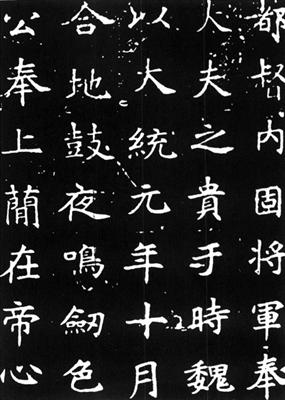 都督内固将軍奉
大夫之貴于時魏
以大統元年十月
合地鼓夜鳴劒色
公奉上蕑在帝心